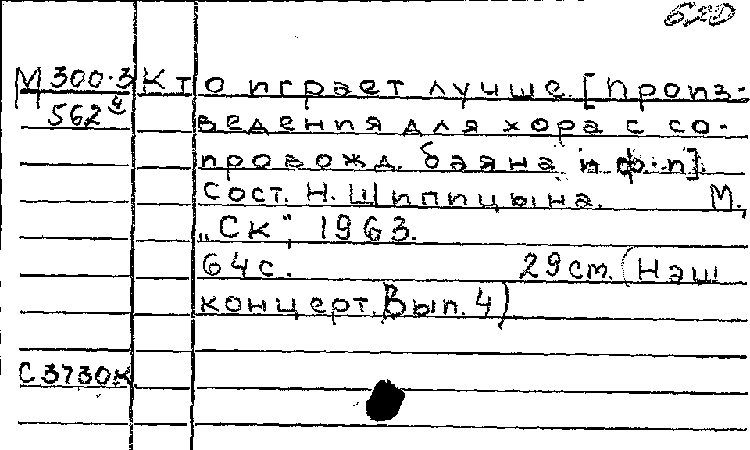 620
М 300·3 Кто играет лучше. [Произ-
562 ведения для хора с со-
провожд. баяна и ф.-п].
Сост. Н. Шипицына. М.,
„СК“, 1963.
64 с. 29 см. (Наш
концерт. Вып. 4)
С3730К